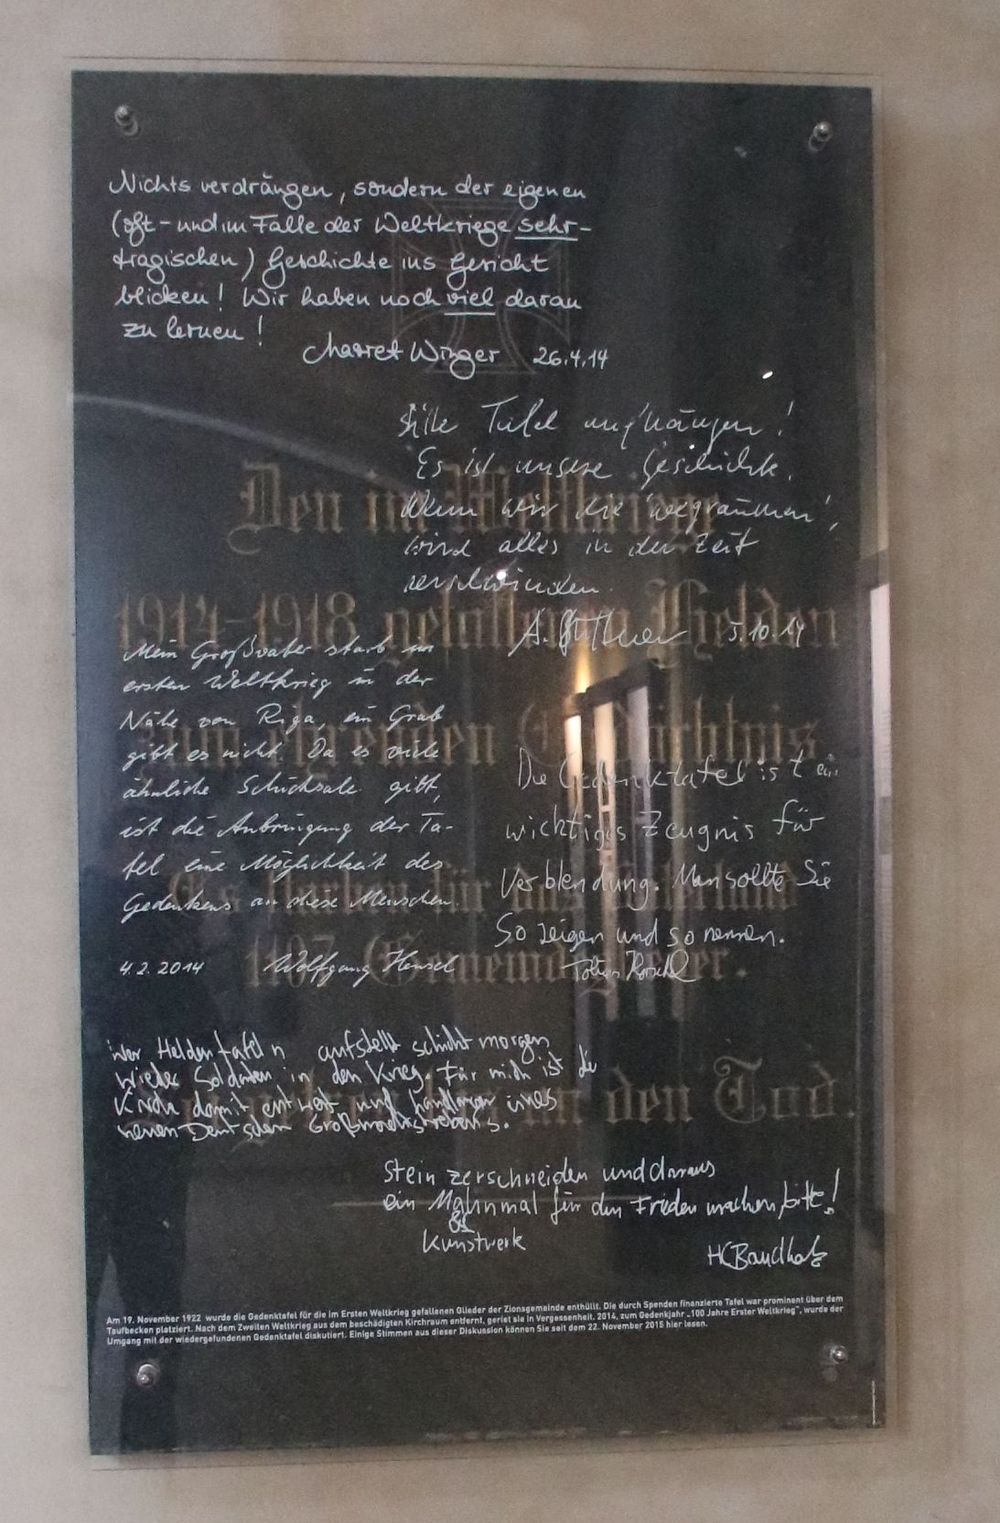 Nichts verdrängen, sondern der eigenen
(oft - und im Falle der Weltkriege sehr -
tragischen) Geschichte ins Gesicht
blicken! Wir haben noch viel daran
zu lernen!
Winger 26.4.14
Bitte Tafel aufhängen!
Es ist unsere Geschichte.
Wenn wir die 'wegräumen',
wird alles in der Zeit
verschwinden.
A. 5.10.14
Den im Weltkriege
1914-1918 gefallenen Helden
zum ehrenden Gedächtnis
Es starben für das Vaterland
1107 Gemeindeglieder.
an den Tod.
Mein Großvater starb im
ersten Weltkrieg in der
Nähe von Riga, ein Grab
gibt es nicht. Da es viele
ähnliche Schicksale gibt,
ist die Anbringung der Ta-
fel eine Möglichkeit des
Gedenkens an diese Menschen.
4.2.2014 Wolfgang Hensel
Die Gedenktafel ist ein
wichtiges Zeugnis für
Verblendung. Man sollte Sie
So zeigen und so nennen.
Tobias
Wer Heldentafeln aufstellt schickt morgen
wieder Soldaten in den Krieg. Für mich ist die
Kirche damit entweiht und Handlanger eines
neuen Deutschen Großmachtstrebens.
Stein zerschneiden und daraus
ein Mahnmal für den Frieden machen, bitte!
Kunstwerk
HC Bandholz
Am 19. November 1922 wurde die Gedenktafel für die im Ersten Weltkrieg gefallenen Glieder der Zionsgemeinde enthüllt. Die durch Spenden finanzierte Tafel war prominent über dem
Taufbecken platziert. Nach dem Zweiten Weltkrieg aus dem beschädigten Kirchraum entfernt, geriet sie in Vergessenheit. 2014, zum Gedenkjahr „100 Jahre Erster Weltkrieg", wurde der
Umgang mit der wiedergefundenen Gedenktafel diskutiert. Einige Stimmen aus dieser Diskussion können Sie seit dem 22. November 2015 hier lesen.